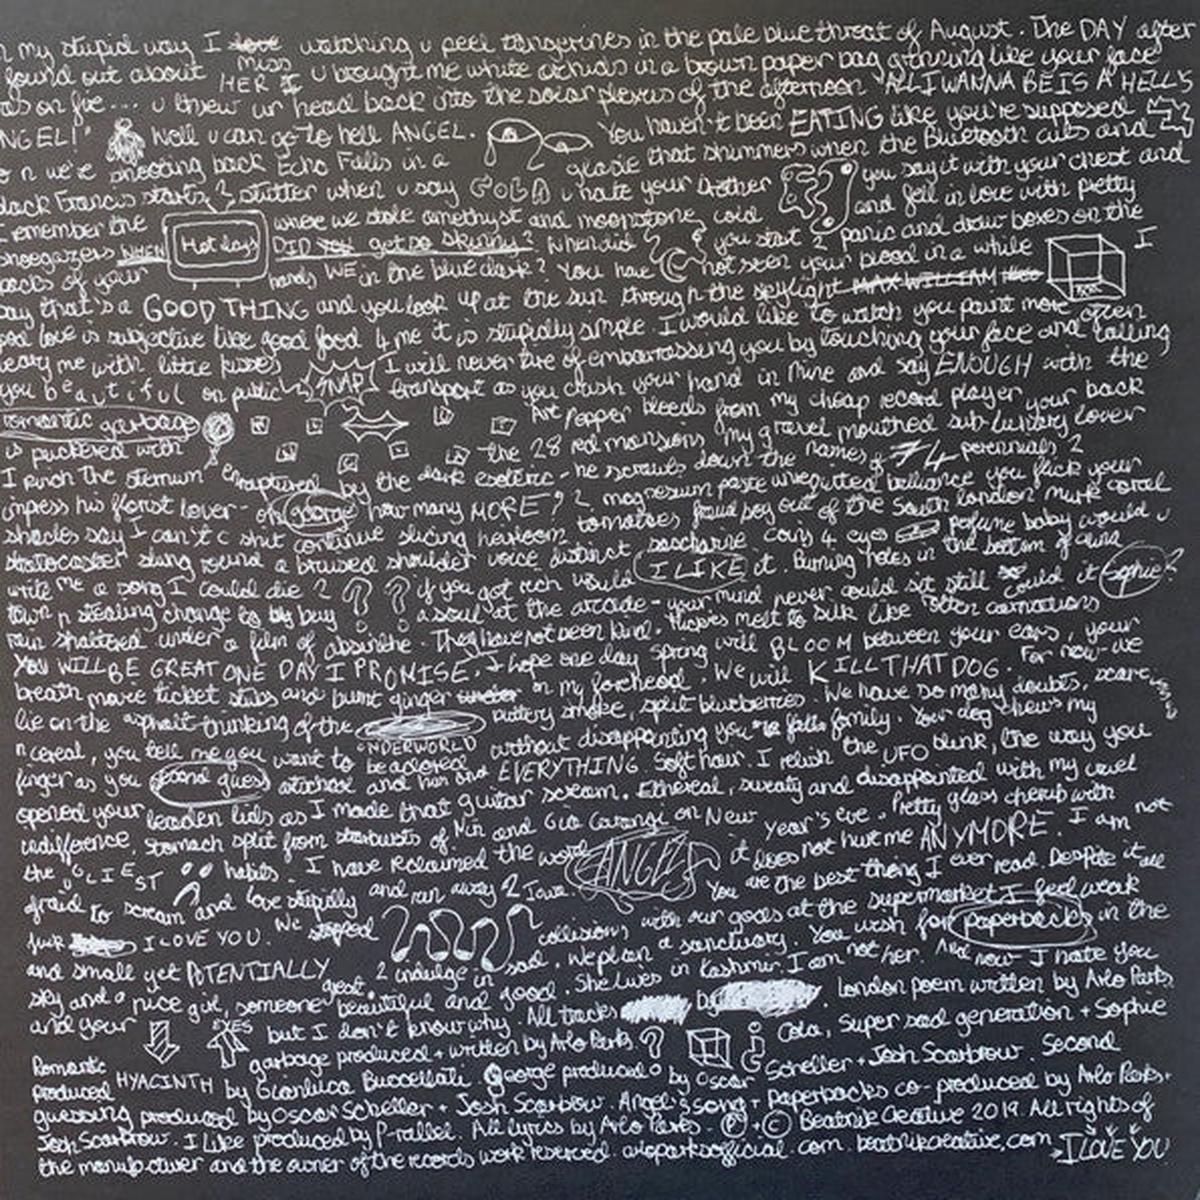 n my stupid way I love watching u peel tangerines in the pale blue throat of August. The DAY after
found out about miss HER I u brought me white orchids in a brown paper bag grinning like your face
was on fire... u threw ur head back into the solar plexus of the afternoon "ALL I WANNA BE IS A HELL'S
NGEL!" Well u can go to hell ANGEL. You haven't been EATING like you're supposed
o n we're shooting back Echo Falls in a glade that shimmers when the Bluetooth cuts and
lack Francis starts 2 stutter when u say COLA u hate your brother you say it with your chest and
emember the Hot days where we stole amethyst and moonstone and fell in love with pretty
shoegazers WHEN DID YOU get so skinny? when did you start 2 panic and draw boxes on the
backs of your hands WE in the blue dark? You have not seen your blood in a while I
say that's a GOOD THING and you look up at the sun through the skylight MAX WILLIAM
good love is subjective like good food 4 me it is stupidly simple. I would like to watch you paint more often
me with little kisses I will never tire of embarrassing you by touching your face and calling
you beautiful on public SNAP transport as you crush your hand in mine and say ENOUGH with the
romantic garbage Art Pepper bleeds from my cheap record player your back
is puckered with the 28 red mansions my gravel mouthed sub-luminary lover
I pinch the sternum enraptured by the dark esoteric - he scrawls down the names of 74 perennials 2
impress his florist lover - oh george how many MORE? 2 magnesium paste unrequited brilliance you fuck your
shades say I can't c shit continue slicing heirloom tomatoes fraud boy out of the South London murk coral
stratocaster slung round a bruised shoulder voice distinct saccharine coins 4 eyes perfume baby would u
write me a song I could die 2 ? ? if you got rich would I LIKE it. Burning holes in the bottom of ur Sophie?
town n stealing change to buy a soul at the arcade - your mind never could sit still could it
rain shattered under a film of absinthe. They have not been kind. melt to silk like rotten carnations
YOU WILL BE GREAT ONE DAY I PROMISE. I hope one day spring will BLOOM between your ears, your
breath mare ticket stubs and burnt ginger under on my forehead. We will KILL THAT DOG. For now - we
lie on the asphalt thinking of the buttery smoke, split blueberries. We have so many doubts, scare
n cereal, you tell me you want to be adored UNDERWORLD without disappointing you family. Your dog chews my
finger as you second guess and EVERYTHING soft hair. I relish the UFO blink, the way you
opened your leaden lids as I made that guitar scream. Ethereal, sweaty and disappointed with my cruel
indifference, stomach split from starbursts of Mir and Gia Carangi on New Year's eve. Pretty glass cherub with
the UGLIEST habits. I have reclaimed the word ANGELS it does not hurt me ANYMORE. I am not
afraid to scream and love stupidly and run away 2 Iowa. You are the best thing I ever read. Despite it all
fuck I LOVE YOU. We stopped collisions with our gods at the supermarket I feel weak
and small yet POTENTIALLY great 2 indulge in sad. We plan a sanctuary. You wish for paperbacks in the
sky and a nice girl, someone beautiful and good. She lives in Kashmir. I am not her. And now I hate you
and your YES but I don't know why. All tracks by . London poem written by Arlo Parks
Romantic garbage produced + written by Arlo Parks. Cola, Super sad generation + Sophie
produced HYACINTH by Gianluca Buccellati. George produced by Oscar Scheller + Josh Scarbrow. Second
guessing produced by Oscar Scheller + Josh Scarbrow. Angel's song + Paperbacks co-produced by Arlo Parks +
Josh Scarbrow. I Like produced by P-rallel. All lyrics by Arlo Parks. ℗ + © Beatnik Creative 2019. All rights of
the manufacturer and the owner of the records work reserved. arloparksofficial.com. beatnikcreative.com → I LOVE YOU